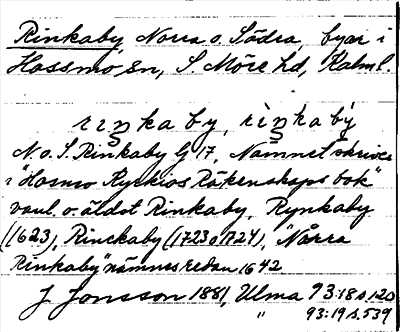 Rinkaby Norra o. Södra, byar i
Hossmo sn, S. Möre hd, Kalm l.
rinkaby, rinkaby
N. o. S. Rinkaby G 17, Namnet skrives
i "Hosmo Kyrkios Räkenskaps bok"
vanl. o. äldst Rinkaby, Rynkaby
(1623), Rinckaby (1723 o 1724), "Norra
Rinkaby" nämnes redan 1642
J. Jonsson 1881, Ulma 93:18 s. 120
" 93:19 s. 539